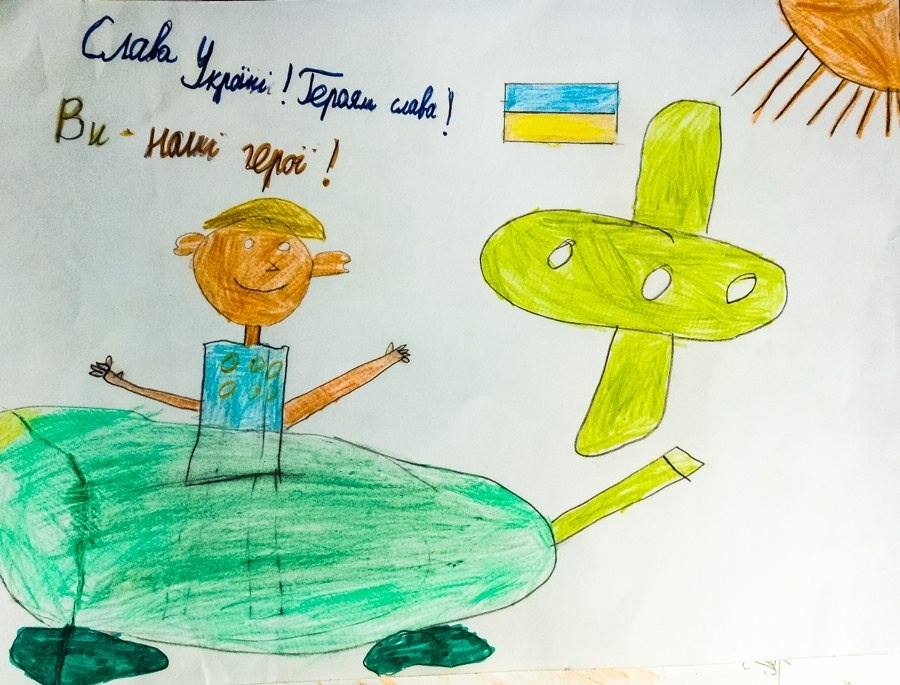 Слава Україні! Героям слава!
Ви - наші герої!